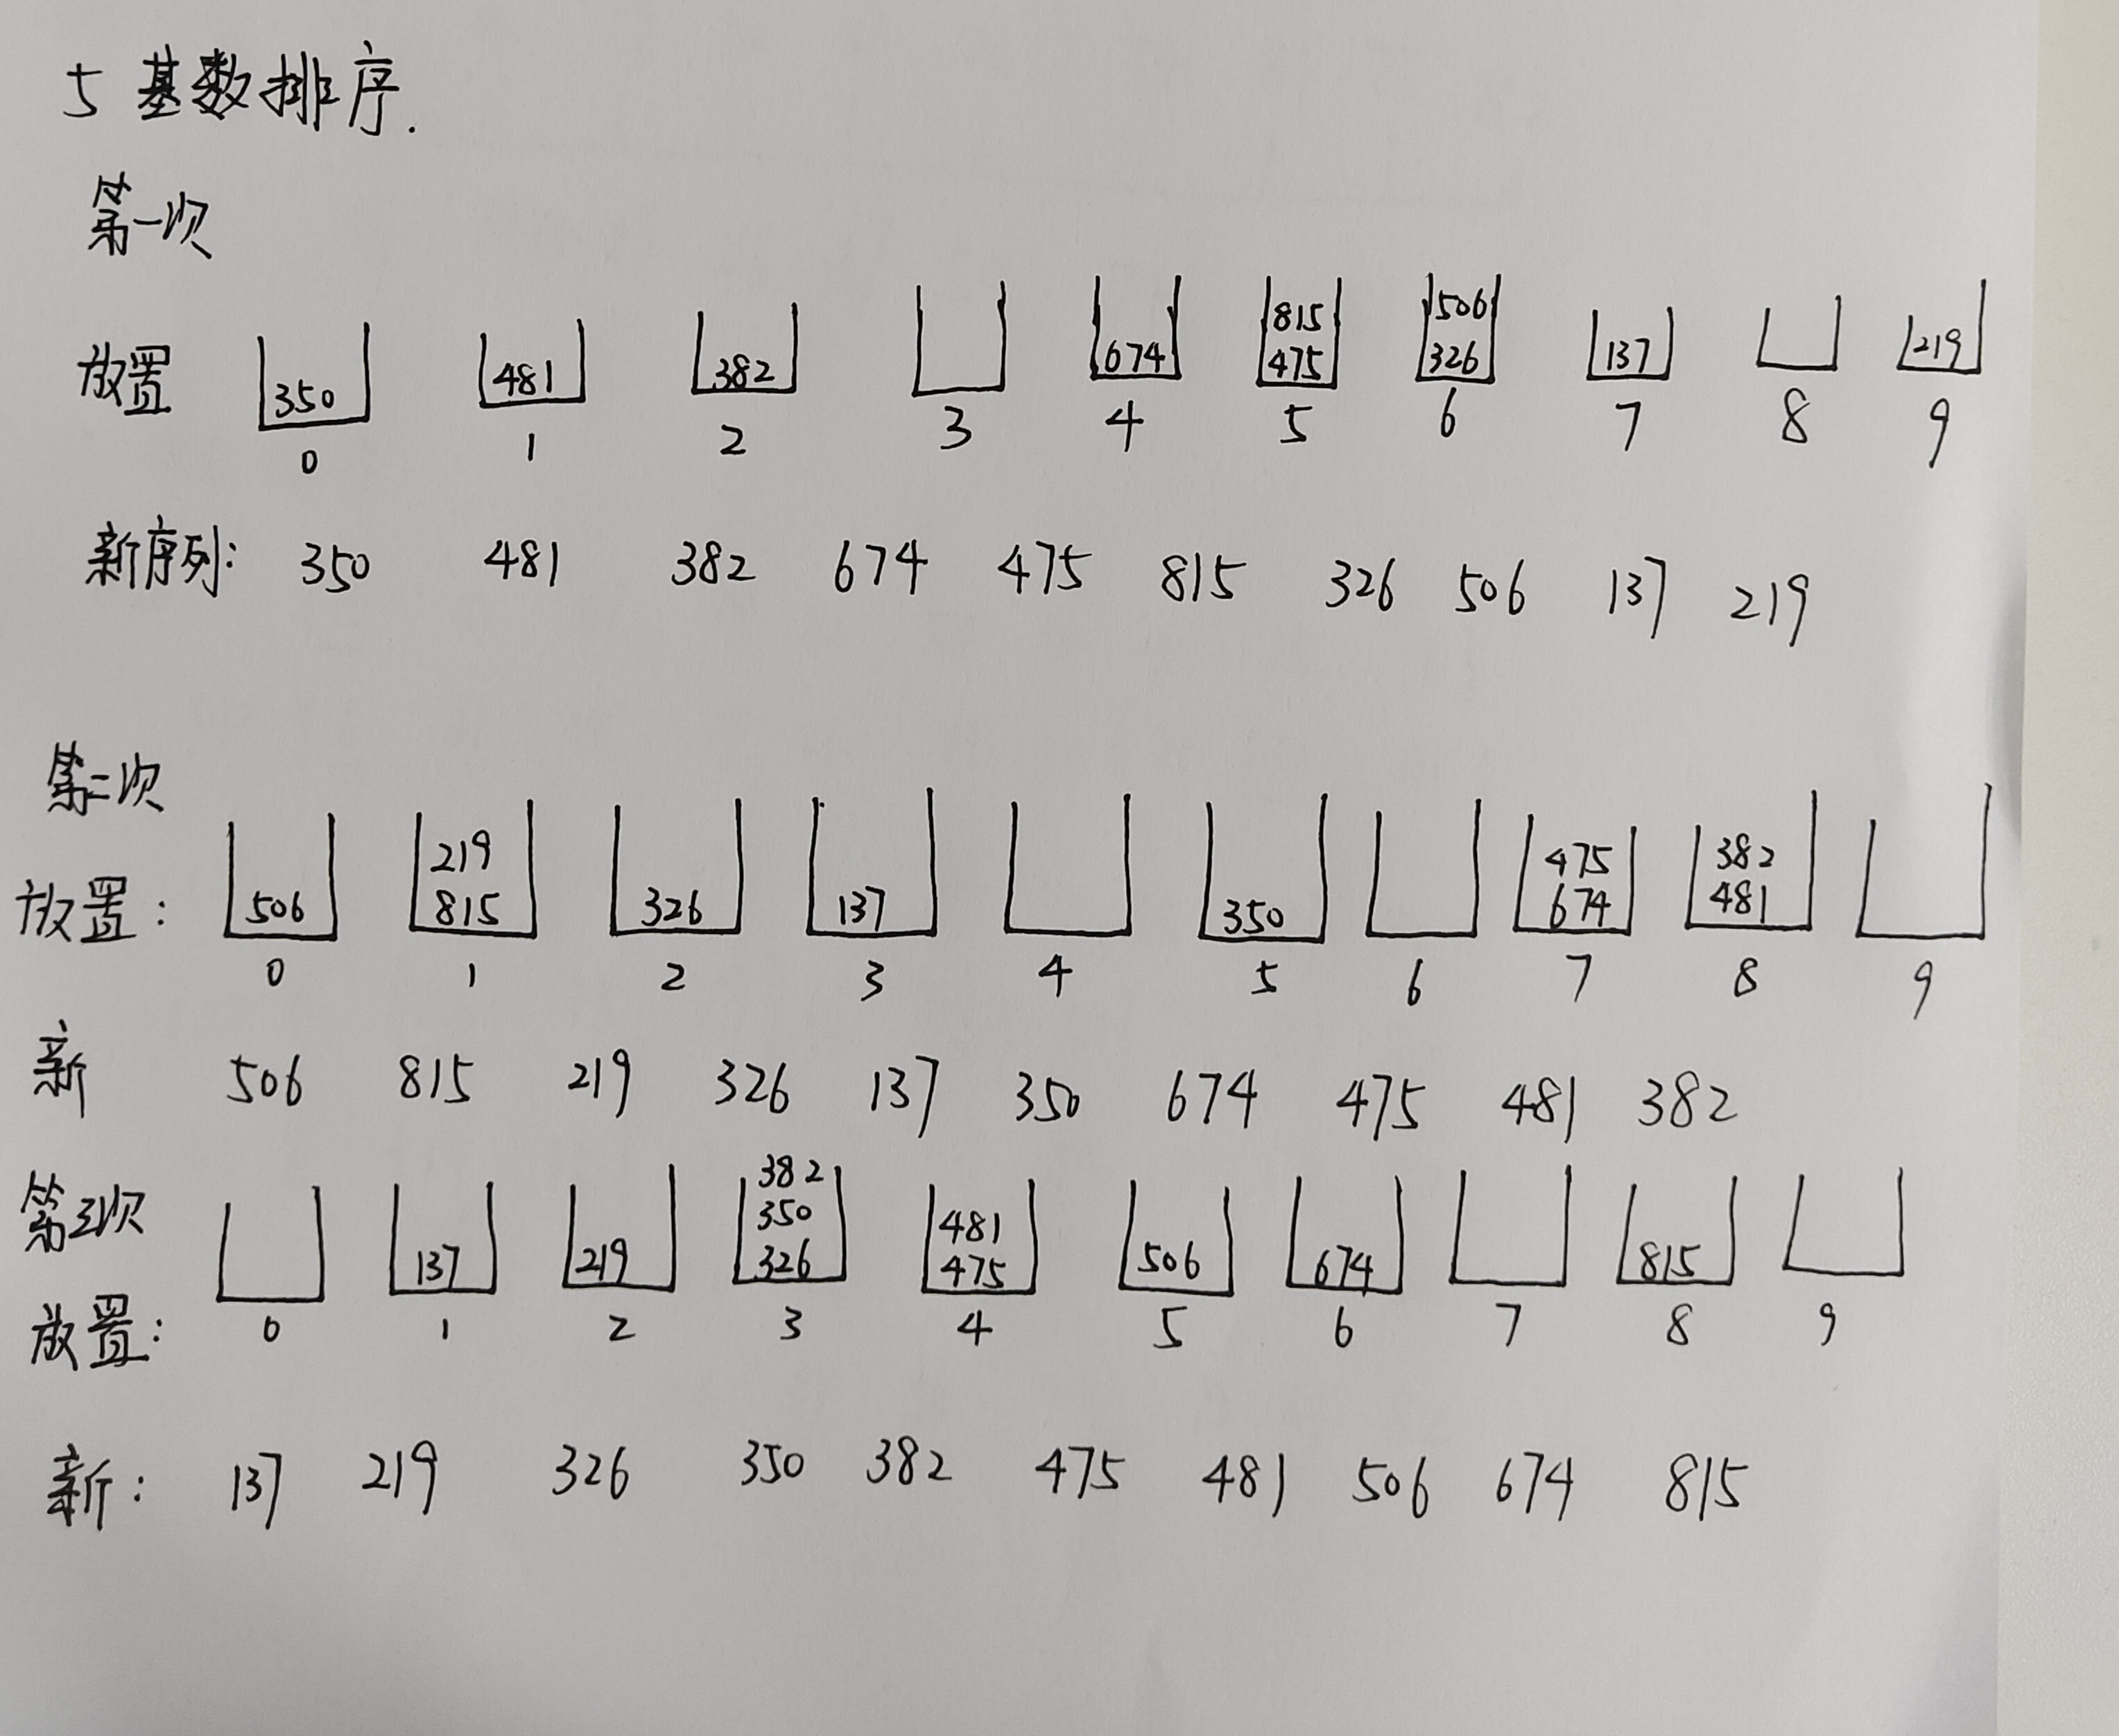 5 基数排序.
第一次
放置 350 481 382 674 815 475 506 326 137 219
0 1 2 3 4 5 6 7 8 9
新序列: 350 481 382 674 475 815 326 506 137 219
第二次
放置: 506 219 815 326 137 350 475 674 382 481
0 1 2 3 4 5 6 7 8 9
新 506 815 219 326 137 350 674 475 481 382
第三次 137 219 382 350 326 481 475 506 674 815
放置: 0 1 2 3 4 5 6 7 8 9
新: 137 219 326 350 382 475 481 506 674 815